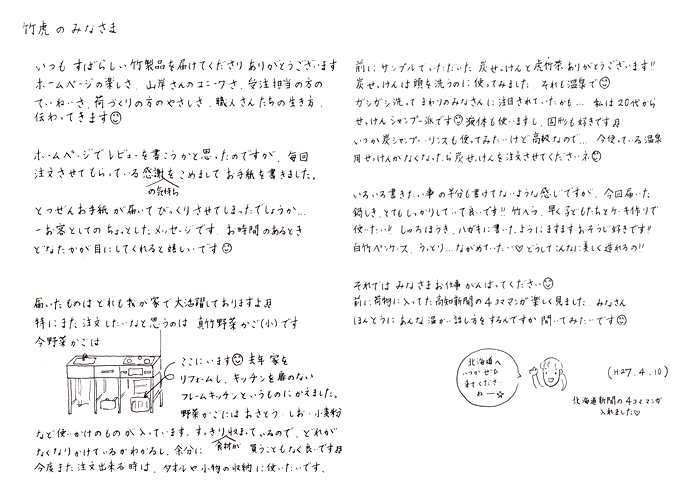 竹虎のみなさま
いつも すばらしい竹製品を届けてくださり ありがとうございます
ホームページの楽しさ、山岸さんのユニークさ、受注担当の方の
ていねいさ、荷づくりの方のやさしさ、職人さんたちの生き方、
伝わってきます☺
ホームページでレビューを書こうかと思ったのですが、毎回
注文させてもらっている感謝をこめまして お手紙を書きました。
の気持ち
とつぜんお手紙が届いてびっくりさせてしまったでしょうか…
一お客としてのちょっとしたメッセージです、お時間のあるとき
どなたかが目にしてくれると嬉しいです☺
届いたものはどれも我が家で大活躍しておりますよ♬
特にまた注文したいなと思うのは 真竹野菜かご(小)です
今野菜かごは
ここにいます☺ 去年 家を
リフォームし、キッチンを扉のない
フレームキッチンというものにかえました。
野菜かごにはおさとう、しお、小麦粉
など使いかけのものが入っています。すっきり収まっているので、どれが
なくなりかけているかわかるし、余分に 買うこともなく良いです♬
食材が
今度また注文出来る時は、タオルや小物の収納に使いたいです。
前にサンプルでいただいた 炭せっけんと虎竹茶ありがとうございます!!
炭せっけんは頭を洗うのに使ってみました、それも温泉で☺
ガシガシ洗って まわりのみなさんに注目されていたかも… 私は20代から
せっけんシャンプー派です☺ 液体も使いますし、固形も好きです♬
いつか炭シャンプー・リンスも使ってみたいけど高級なので… 今使っている温泉
用せっけんがなくなったら炭せっけんを注文させてくださいネ☺
いろいろ書きたい事の半分も書けてないような感じですが、今回届いた
鍋しき、とてもしっかりしていて良いです!! 竹べら、早く子どもたちとケーキ作りで
使いたい!! しゅろほうき、ハガキに書いたようにますますおそうじ好きです!!
白竹ペンケース、うっとり…ながめていたい♡ どうしてこんなに美しく造れるの!!
それでは みなさまお仕事がんばってください☺
前に荷物に入ってた高知新聞の4コママンガ楽しく見ました、みなさん
ほんとうにあんな温かい話し方をするんですか 聞いてみたいです☺
北海道へ
いつかぜひ
きてくださ
ねー☆
(H27.4.10)
北海道新聞の4コママンガ
入れました♡